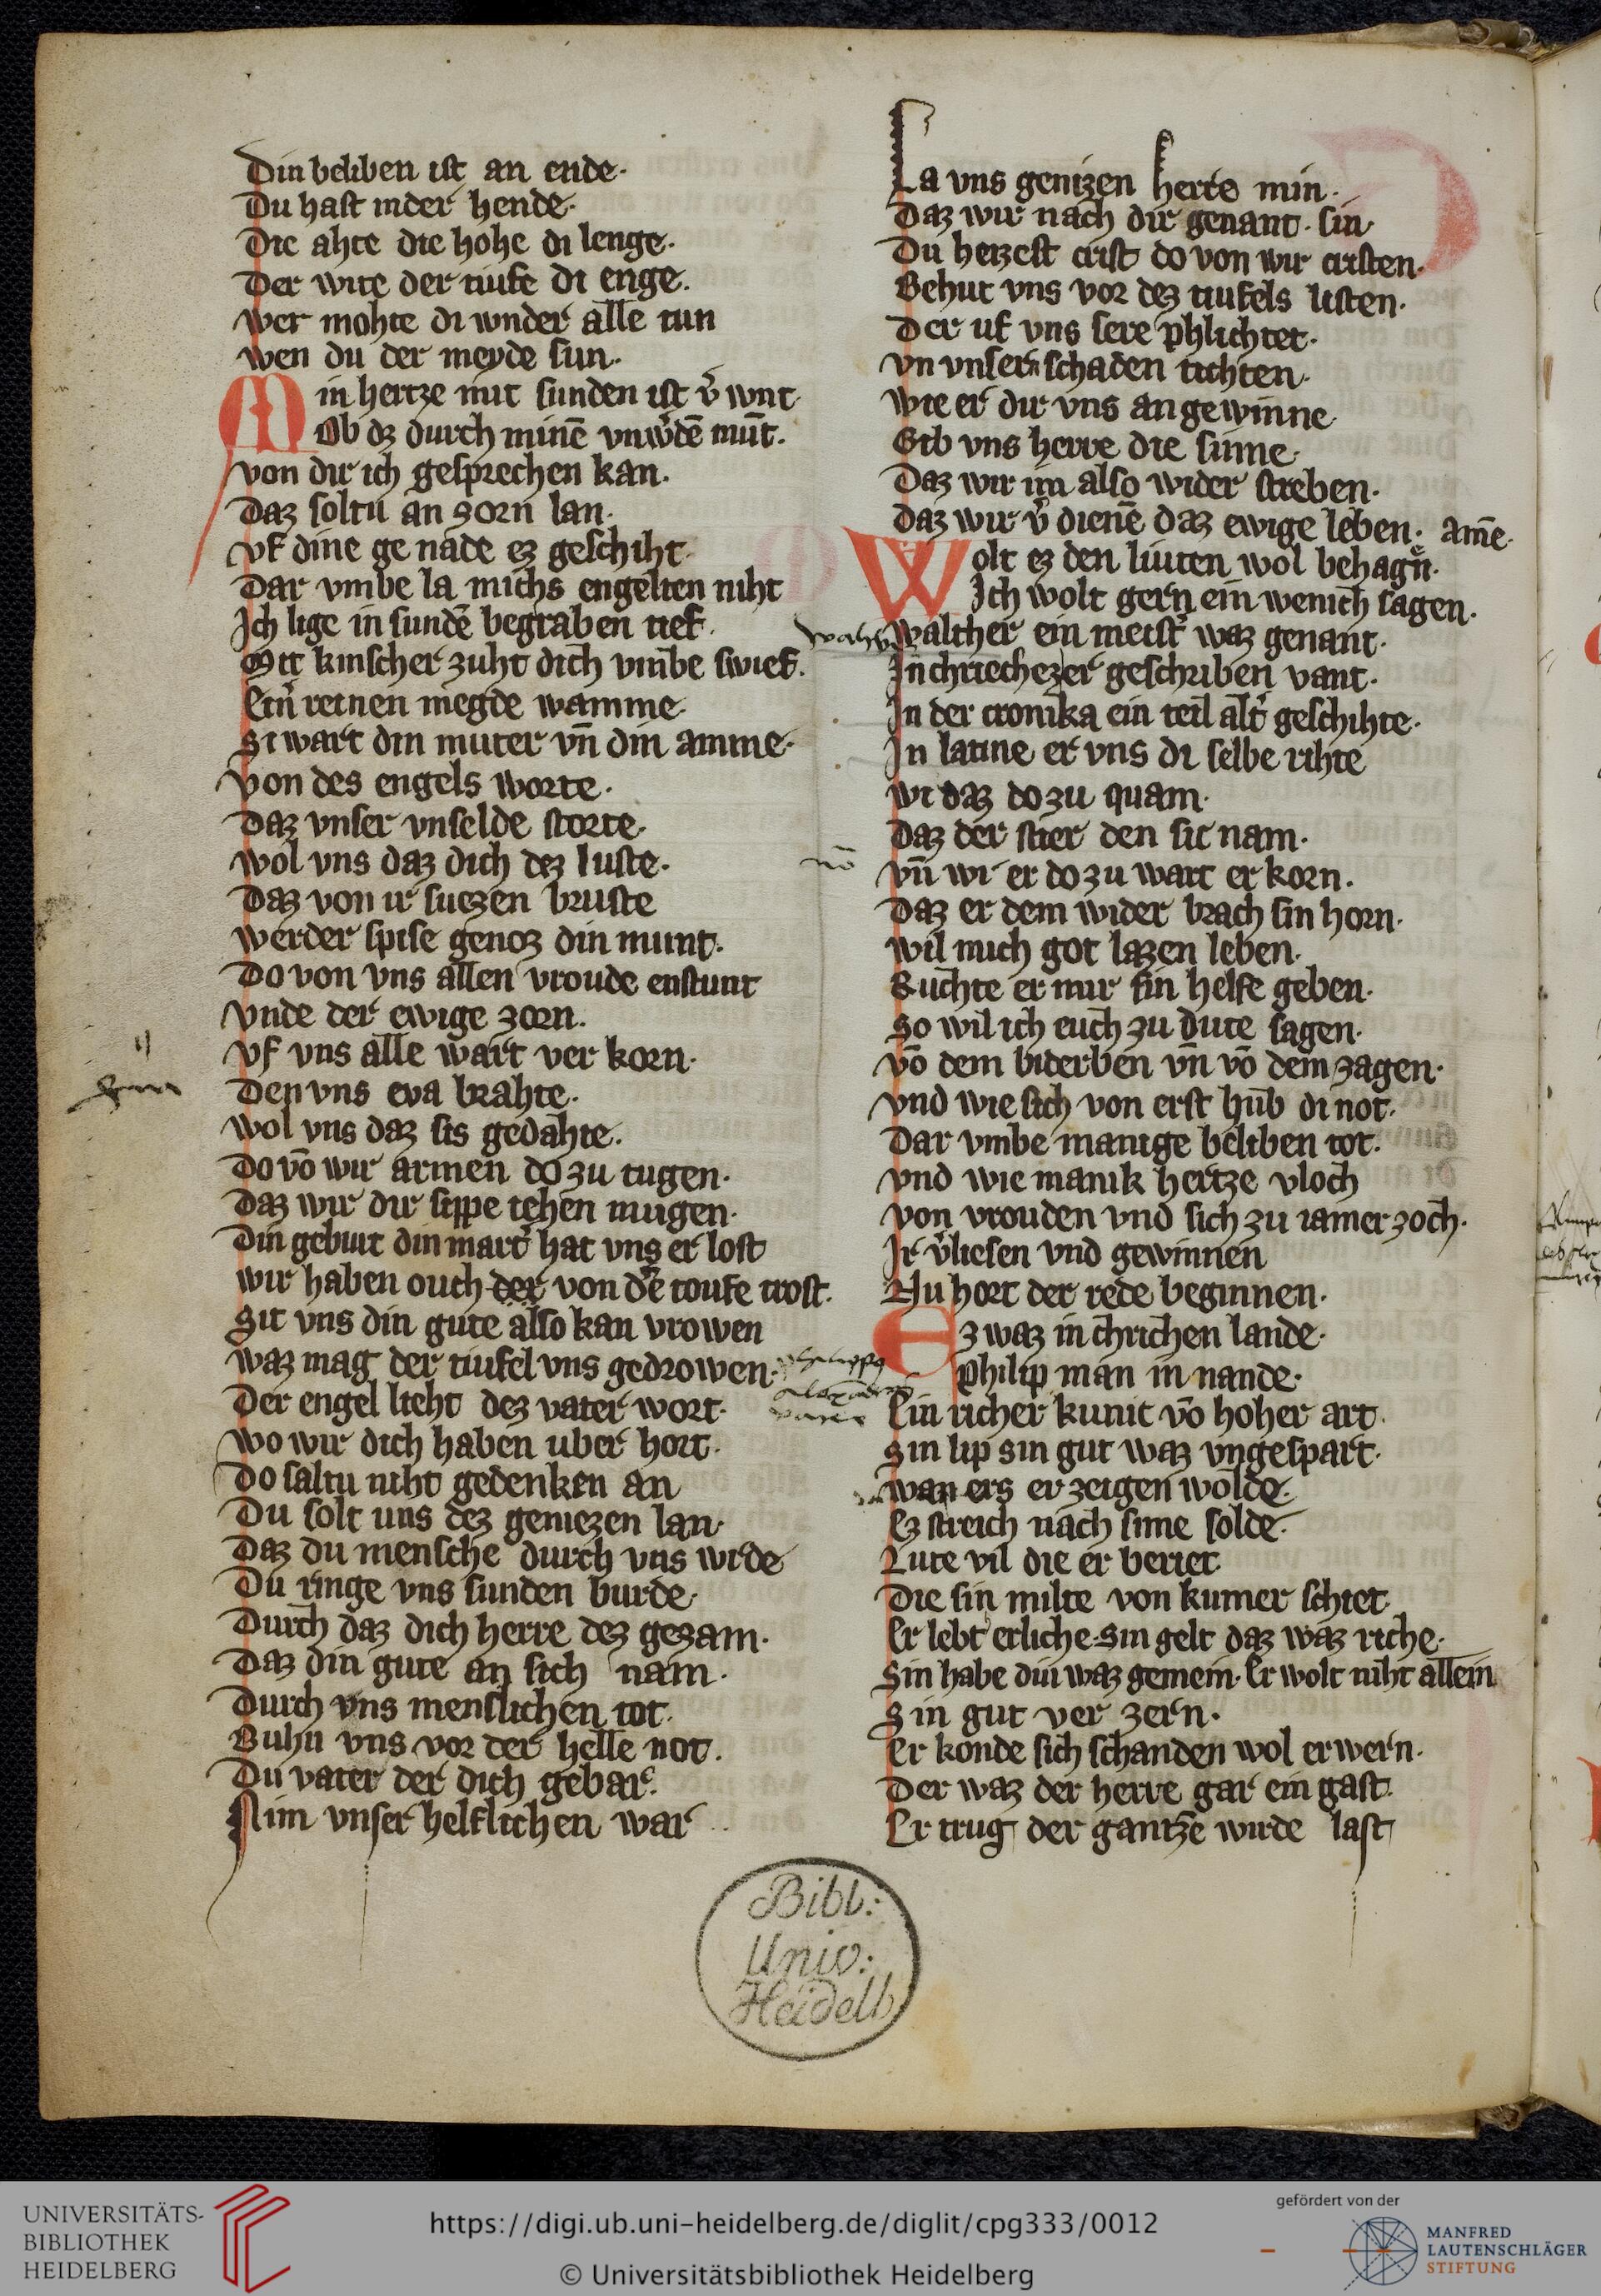 Din beliben ist an ende·
Du hast inder hende·
Die ahte die hohe di lenge·
Der wite der tiufe di enge·
wer mohte di wnder alle tun
wen du der meyde sun·
Min hertze mit sunden ist v̄ wnt
Ob dz durch minē vnw̄dē mūt·
von dir ich gesprechen kan·
Daz soltu an zorn lan·
vf dine ge nade ez geschiht·
Dar vmbe la michs engelten niht
Ich lige in sundē begraben tief·
Mit kuscher zuht dich vmbe swief·
Ein̄ reinen megde wamme·
Si wart din muter vn̄ din amme·
Von des engels worte·
Daz vnser vnselde storte·
wol vns daz dich dez luste·
Daz von ir suezen bruste
werder spise genoz din munt·
Do von vns allen vroude enstunt
vnde der ewige zorn·
vf vns alle wart ver korn·
Den vns eva brahte·
wol vns daz sis gedahte·
Do vō wir armen do zu tugen·
Daz wir dir sippe iehen mugen·
Din geburt din mart̄ hat vns er lost
wir haben ouch der von dē toufe trost·
Sit vns din gute also kan vrowen
waz mag der tiufel vns gedrowen·
Der engel lieht dez vater wort·
wo wir dich haben uber hort·
Do saltu niht gedenken an
Du solt uns dez geniezen lan·
Daz du mensche durch vns wrde
Du ringe vns sunden burde·
Durch daz dich herre dez gezam·
Daz din gute an sich nam·
Durch vns menslichen tot·
Buhn vns vor der helle not·
Du vater der dich gebar·
Nim vnser helflichen war
La vns genizen herre min·
Daz wir nach dir genant· sin·
Du heizest crist do von wir cristen·
Behut vns vor dez tiufels listen·
Der uf vns sere phlichtet·
vn vnsern schaden tichten·
wie er dir vns an gewinne
Gib vns herre die sinne·
Daz wir im also wider streben·
daz wir v̄ dienē daz ewige leben· amē·
Wolt ez den liuten wol behagn̄·
Ich wolt gern ein wenich sagen·
walther ein meist̄ waz genant·
In chriechezer geschriben vant·
In der cronika ein teil alt̄ geschihte·
In latine er vns di selbe rihte
wi daz do zu quam·
Daz der stier den sit nam·
vn̄ wi er do zu wart er korn·
Daz er dem wider brach sin horn·
wil mich got lazen leben·
Ruchte er mir sin helfe geben·
So wil ich euch zu dute sagen·
vō dem biderben vn̄ vō dem zagen·
vnd wie sich von erst hub di not·
Dar vmbe manige beliben tot·
vnd wie manik hertze vloch
von vrouden vnd sich zu iamer zoch·
Ir v̄liesen vnd gewinnen
Nu hort der rede beginnen·
Ez waz in chrichen lande·
Philip man in nande·
Ein richer kunic vō hoher art·
Sin lip sin gut waz vngespart·
wan ers er zeigen wolde·
Ez streich nach sime solde·
Lute vil die er beriet
Die sin milte von kumer schiet
Er lebt erliche· sin gelt daz waz riche·
Sin habe diu waz gemein· Er wolt niht allein
Sin gut ver zern·
Er konde sich schanden wol erwern·
Der waz der herre gar ein gast·
Er trug der gantzē wirde last
Bibl:
Univ:
Heidelb
UNIVERSITÄTS-
BIBLIOTHEK
HEIDELBERG
https://digi.ub.uni-heidelberg.de/diglit/cpg333/0012
© Universitätsbibliothek Heidelberg
gefördert von der
MANFRED
LAUTENSCHLÄGER
STIFTUNG